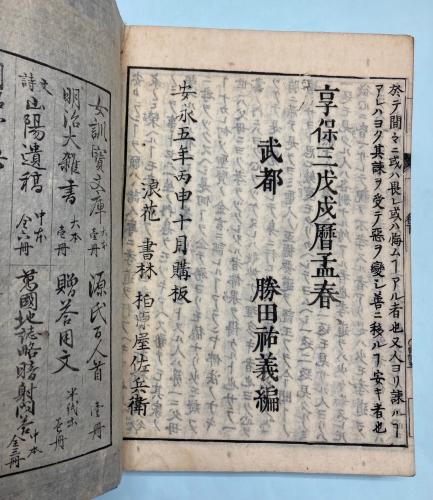 於テ間々ニ或ハ畏レ或ハ悔ムヿアル者也又人ヨリ諫ルヿ
アレハヨク其諫ヲ受テ惡ヲ變シ善ニ移ルヿ安キ者也
享保三戊戌暦孟春
武都　勝田祐義編
安永五年丙申十月購板
浪花　書林　柏原屋佐兵衛
女訓寶文庫　大本壱册　源氏百人首　壱册
明治大雜書　大本壱册　贈答用文　半紙出壱册
詩文　山陽遺稿　中本全六册　萬國地誌略暗射問答　中本全三册